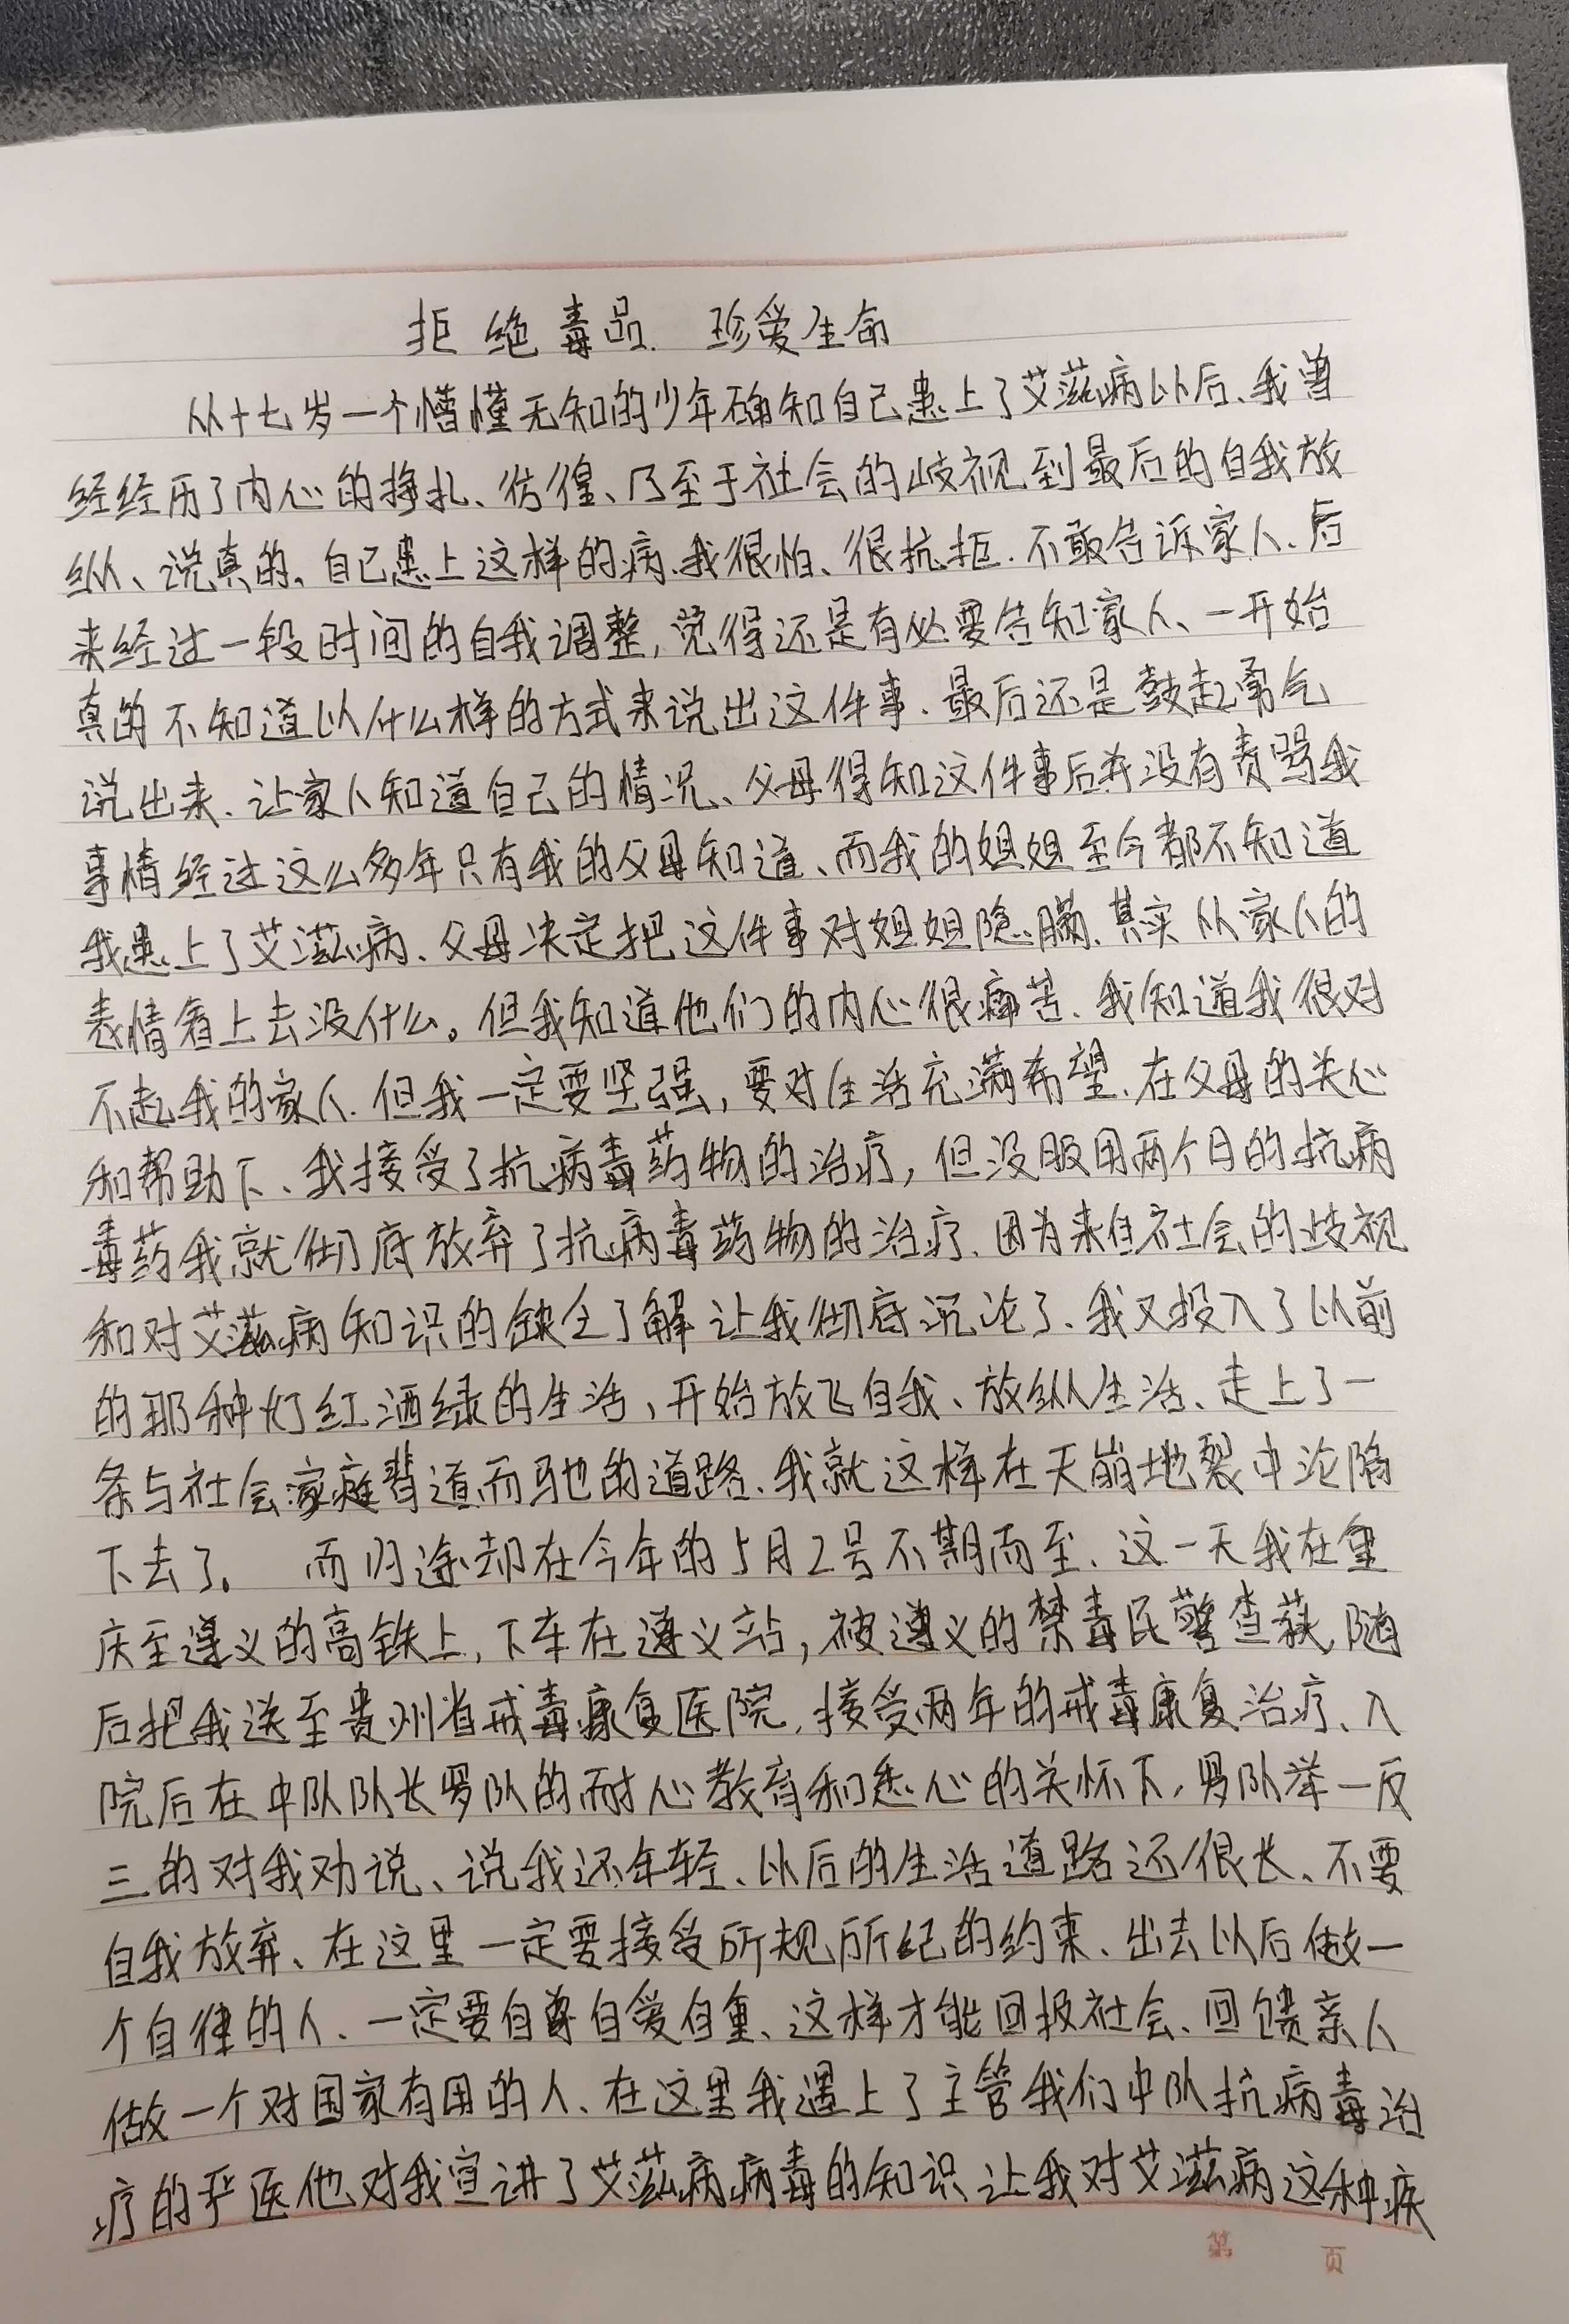 拒绝毒品、珍爱生命
从十七岁一个懵懂无知的少年确知自己患上了艾滋病以后、我曾
经经历了内心的挣扎、彷徨、乃至于社会的歧视到最后的自我放
纵、说真的、自己患上这样的病、我很怕、很抗拒、不敢告诉家人、后
来经过一段时间的自我调整,觉得还是有必要告知家人、一开始
真的不知道以什么样的方式来说出这件事、最后还是鼓起勇气
说出来、让家人知道自己的情况、父母得知这件事后并没有责骂我
事情经过这么多年只有我的父母知道、而我的姐姐至今都不知道
我患上了艾滋病、父母决定把这件事对姐姐隐瞒、其实从家人的
表情看上去没什么。但我知道他们的内心很痛苦、我知道我很对
不起我的家人、但我一定要坚强,要对生活充满希望、在父母的关心
和帮助下、我接受了抗病毒药物的治疗,但没服用两个月的抗病
毒药我就彻底放弃了抗病毒药物的治疗、因为来自社会的歧视
和对艾滋病知识的缺乏了解让我彻底沉沦了、我又投入了以前
的那种灯红酒绿的生活、开始放飞自我、放纵生活、走上了一
条与社会家庭背道而驰的道路、我就这样在天崩地裂中沦陷
下去了。 而归途却在今年的5月2号不期而至、这一天我在重
庆至遵义的高铁上,下车在遵义站,被遵义的禁毒民警查获、随
后把我送至贵州省戒毒康复医院,接受两年的戒毒康复治疗、入
院后在中队队长罗队的耐心教育和悉心的关怀下,罗队举一反
三的对我劝说、说我还年轻、以后的生活道路还很长、不要
自我放弃、在这里一定要接受所规所纪的约束、出去以后做一
个自律的人、一定要自尊自爱自重、这样才能回报社会、回馈亲人
做一个对国家有用的人、在这里我遇上了主管我们中队抗病毒治
疗的严医他对我宣讲了艾滋病病毒的知识让我对艾滋病这种疾
第 页